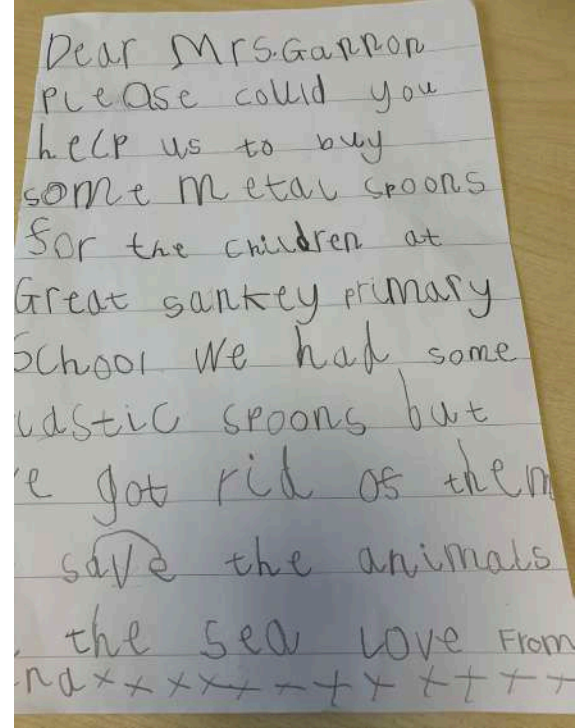 Dear Mrs.Gannon
please could you
help us to buy
some metal spoons
for the children at
Great sankey primary
School We had some
lastic spoons but
e got rid of them
save the animals
the sea Love From
na xxxxxxxxxxxx